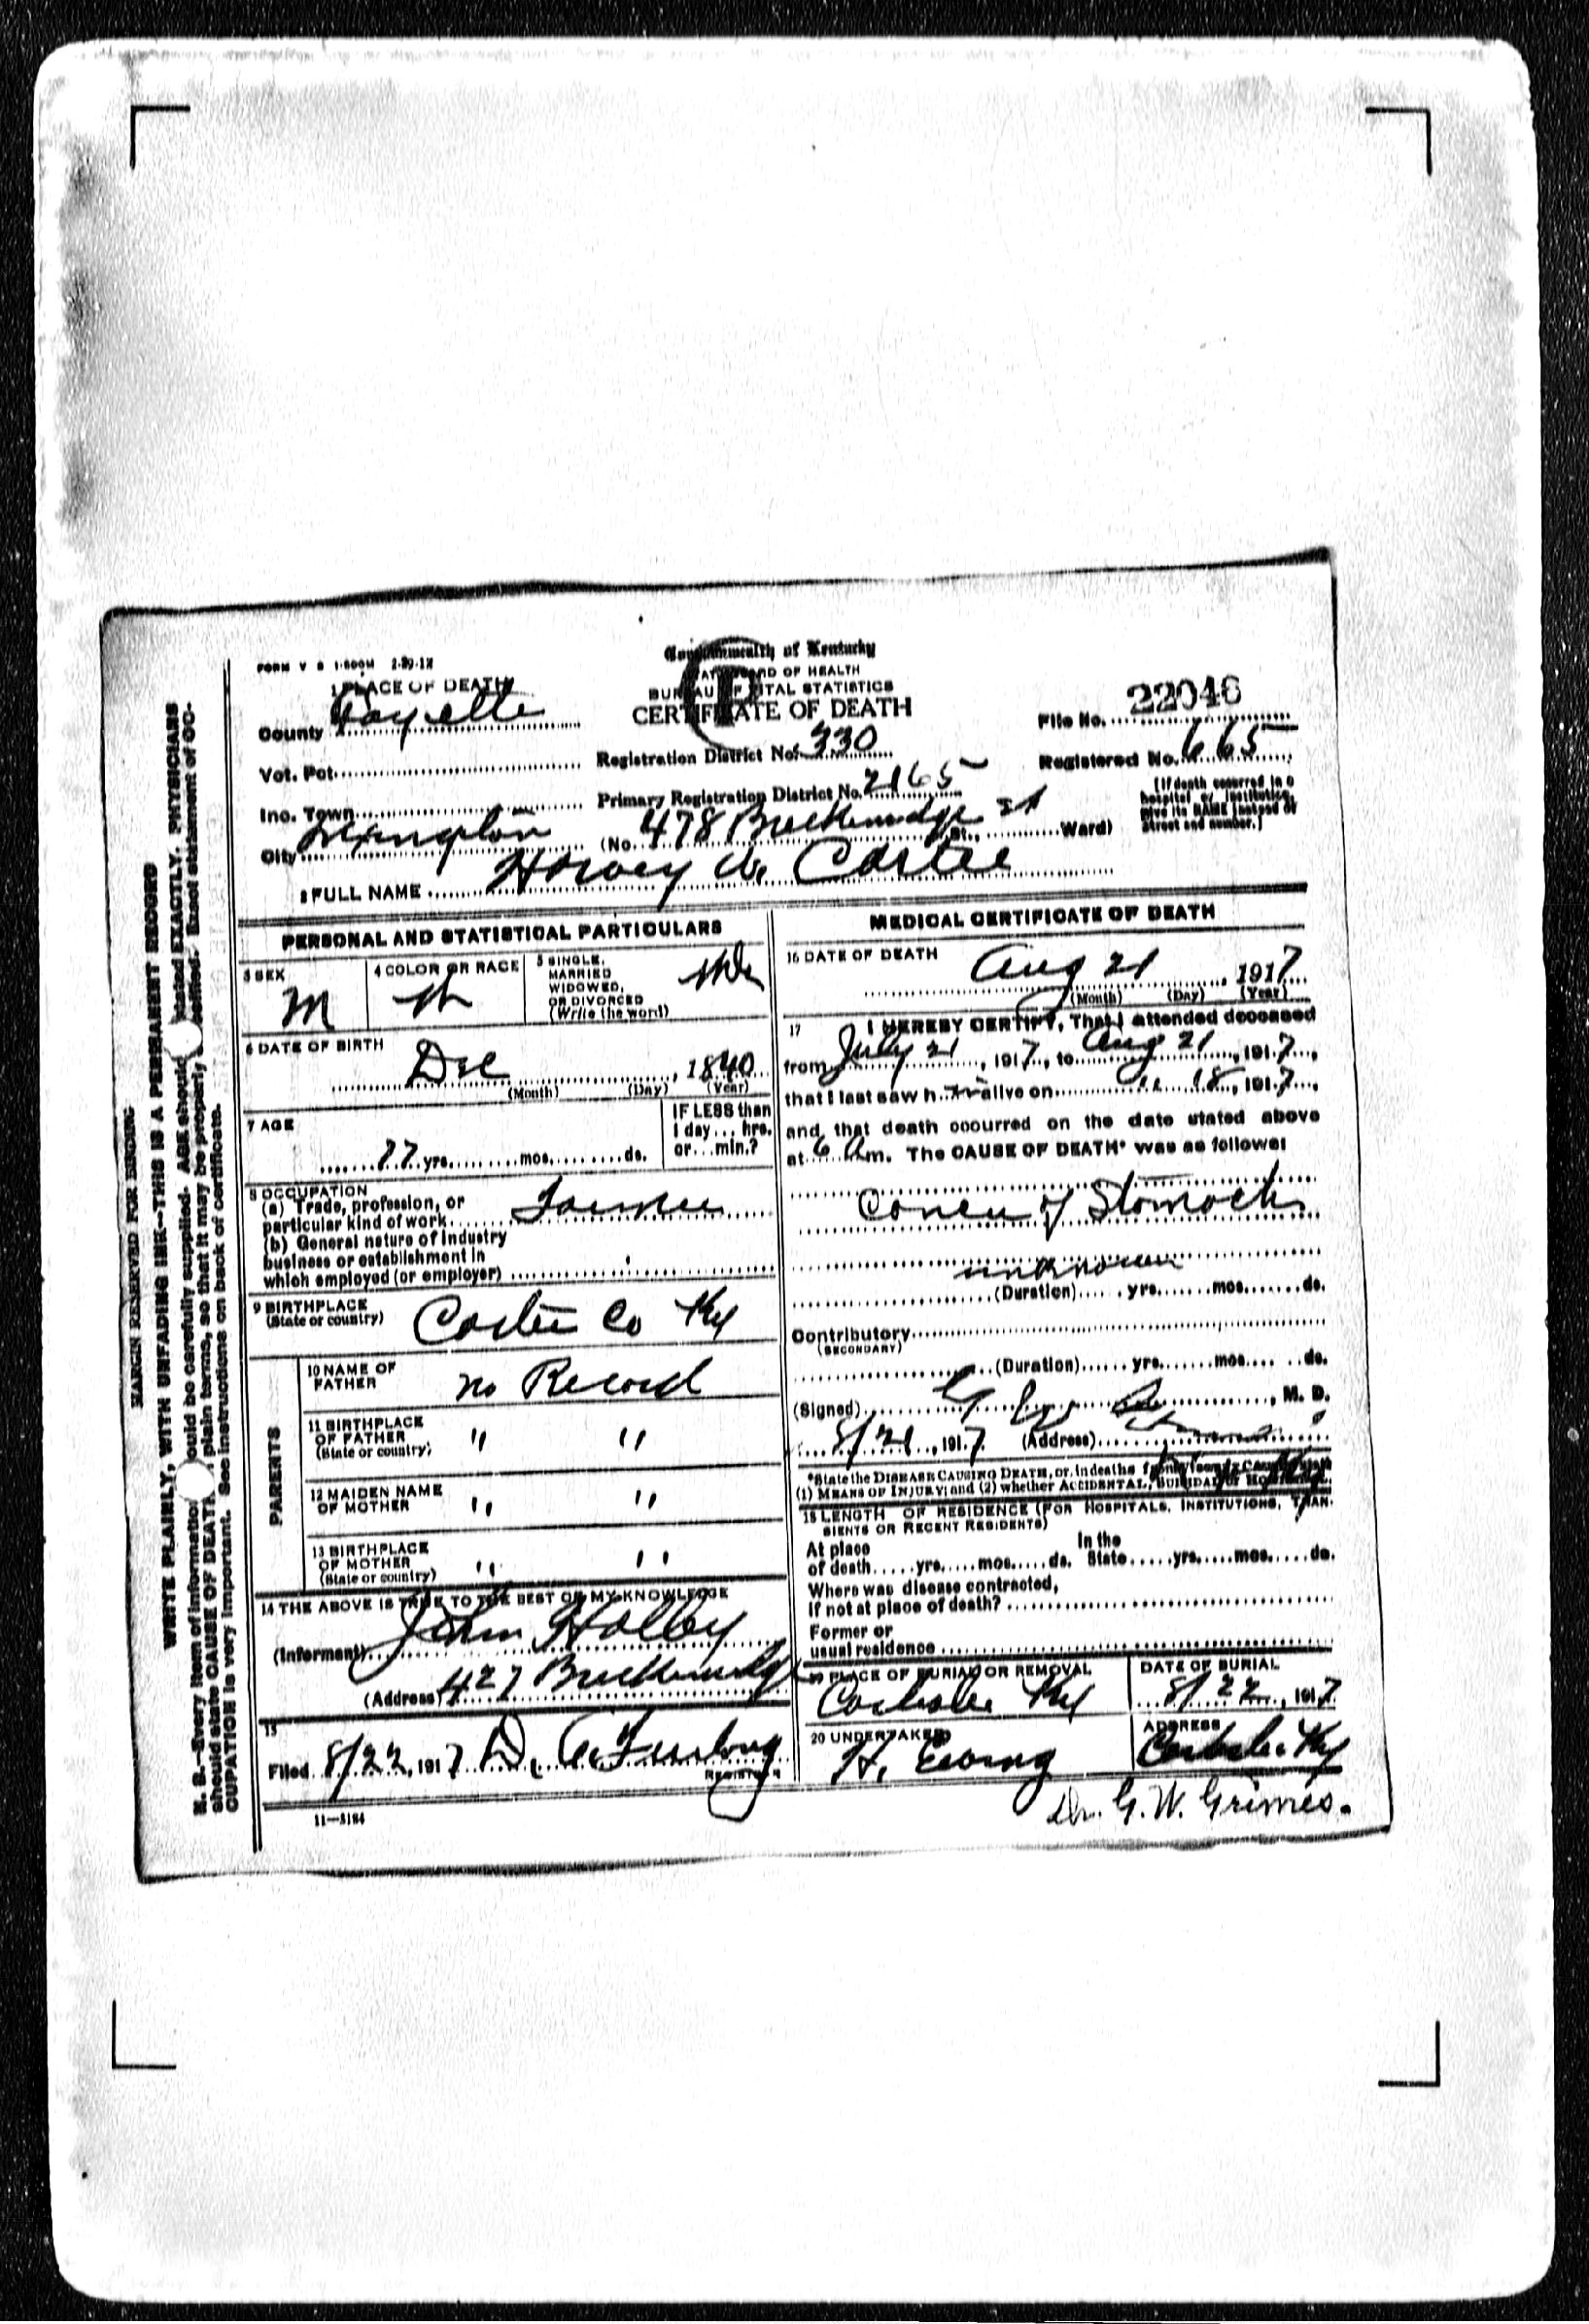 FORM V S 1-500M 2-29-12
Commonwealth of Kentucky
BOARD OF HEALTH
BUREAU OF VITAL STATISTICS
CERTIFICATE OF DEATH
1 PLACE OF DEATH
County Fayette
Vot. Pct.
Inc. Town
City Lexington
Registration District No. 330
Primary Registration District No. 2165
(No. 478 Breckinridge st St., Ward)
File No. 22046
Registered No. 665
[If death occurred in a
hospital or institution,
give its NAME instead of
street and number.]
2 FULL NAME Harvey W. Carter
PERSONAL AND STATISTICAL PARTICULARS
3 SEX
M
4 COLOR OR RACE
5 SINGLE,
MARRIED
WIDOWED,
OR DIVORCED
(Write the word)
6 DATE OF BIRTH
Dec , 1840
(Month) (Day) (Year)
7 AGE
77 yrs. mos. ds.
IF LESS than
1 day... hrs.
or... min.?
8 OCCUPATION
(a) Trade, profession, or
particular kind of work Farmer
(b) General nature of industry
business or establishment in
which employed (or employer)
9 BIRTHPLACE
(State or country) Carter Co Ky
PARENTS
10 NAME OF
FATHER no Record
11 BIRTHPLACE
OF FATHER
(State or country) " "
12 MAIDEN NAME
OF MOTHER " "
13 BIRTHPLACE
OF MOTHER
(State or country) " "
14 THE ABOVE IS TRUE TO THE BEST OF MY KNOWLEDGE
(Informant) John Holley
(Address) 427 Breckinridge
15
Filed 8/22, 1917 D. Furlong
REGISTRAR
11-3184
MEDICAL CERTIFICATE OF DEATH
16 DATE OF DEATH
Aug 21, 1917
(Month) (Day) (Year)
17 I HEREBY CERTIFY, That I attended deceased
from July 21, 1917, to Aug 21, 1917,
that I last saw him alive on " 18, 1917,
and that death occurred on the date stated above
at 6 a m. The CAUSE OF DEATH* was as follows:
Cancer of Stomach
unknown
(Duration) yrs. mos. ds.
Contributory
(SECONDARY)
(Duration) yrs. mos. ds.
(Signed) , M. D.
8/21, 1917 (Address)
*State the DISEASE CAUSING DEATH, or, in deaths from
(1) MEANS OF INJURY; and (2) whether ACCIDENTAL, SUICIDAL or HOMICIDAL.
18 LENGTH OF RESIDENCE (FOR HOSPITALS, INSTITUTIONS, TRAN-
SIENTS OR RECENT RESIDENTS)
At place In the
of death yrs. mos. ds. State yrs. mos. ds.
Where was disease contracted,
If not at place of death?
Former or
usual residence
19 PLACE OF BURIAL OR REMOVAL
Carlisle Ky
DATE OF BURIAL
8/22, 1917
20 UNDERTAKER
H. Ewing
ADDRESS
Carlisle Ky
Dr. G. W. Grimes.
MARGIN RESERVED FOR BINDING
WRITE PLAINLY, WITH UNFADING INK—THIS IS A PERMANENT RECORD
N. B.—Every item of information should be carefully supplied. AGE should be stated EXACTLY. PHYSICIANS
should state CAUSE OF DEATH in plain terms, so that it may be properly classified. Exact statement of OC-
CUPATION is very important. See instructions on back of certificate.